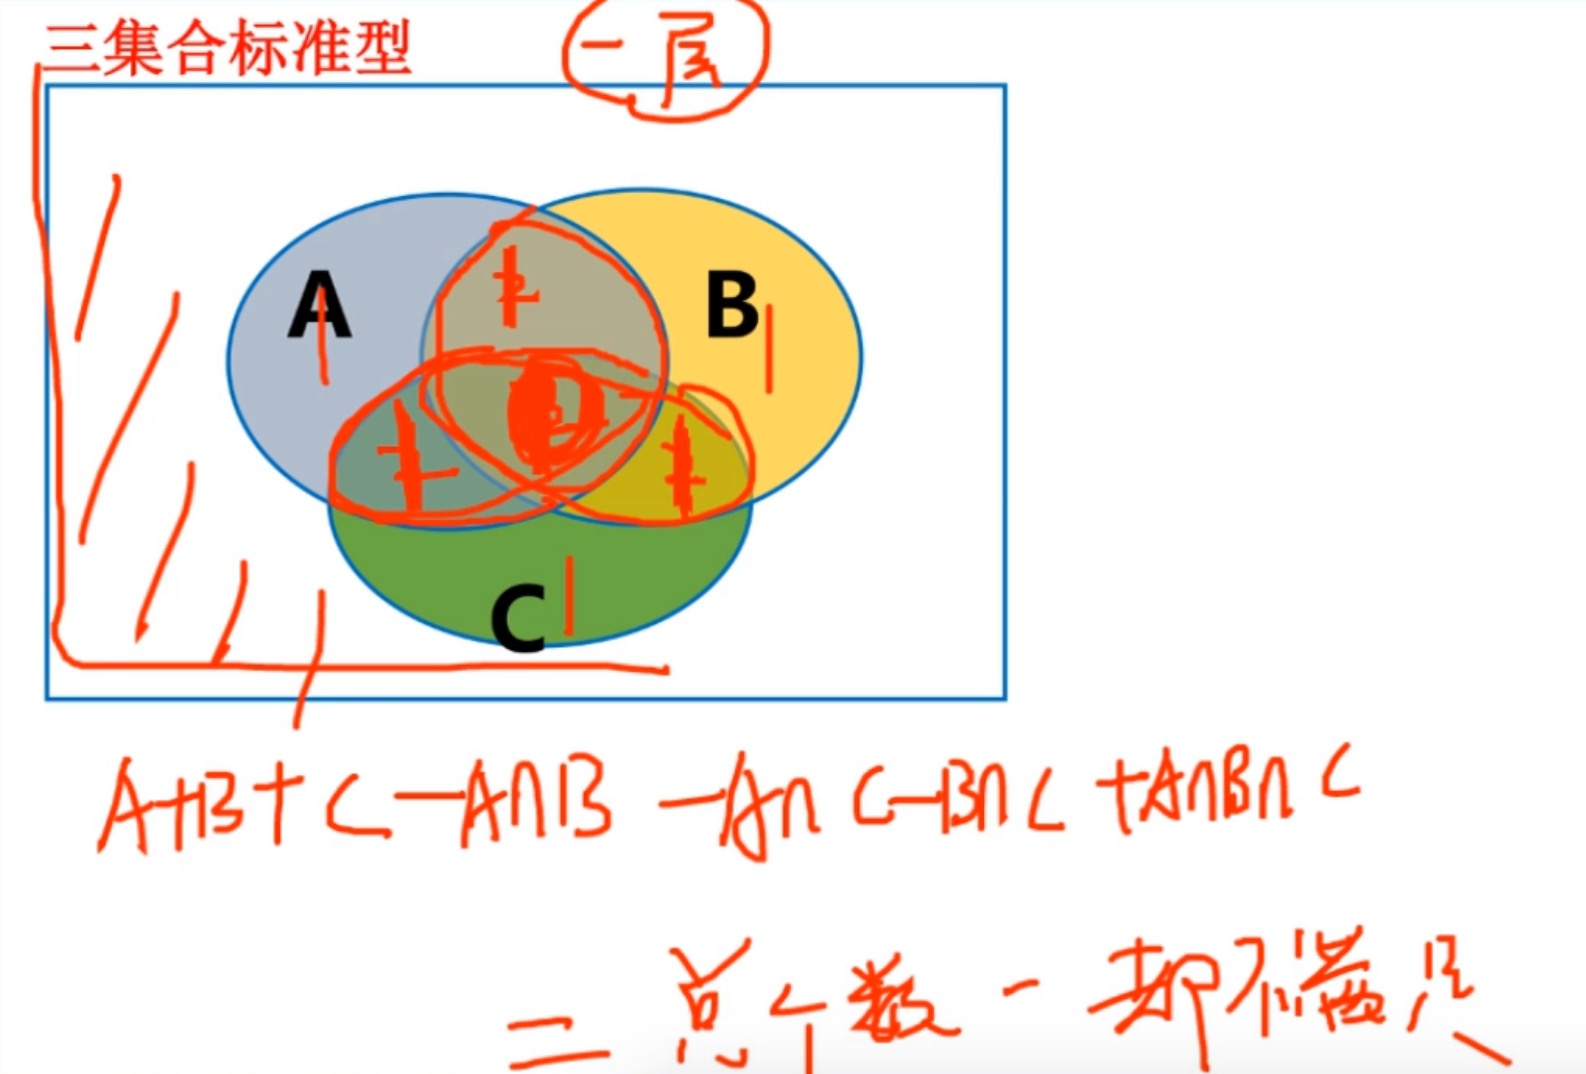 三集合标准型
一层
A
B
C
A+B+C-A∩B-A∩C-B∩C+A∩B∩C
=总个数-却不满足